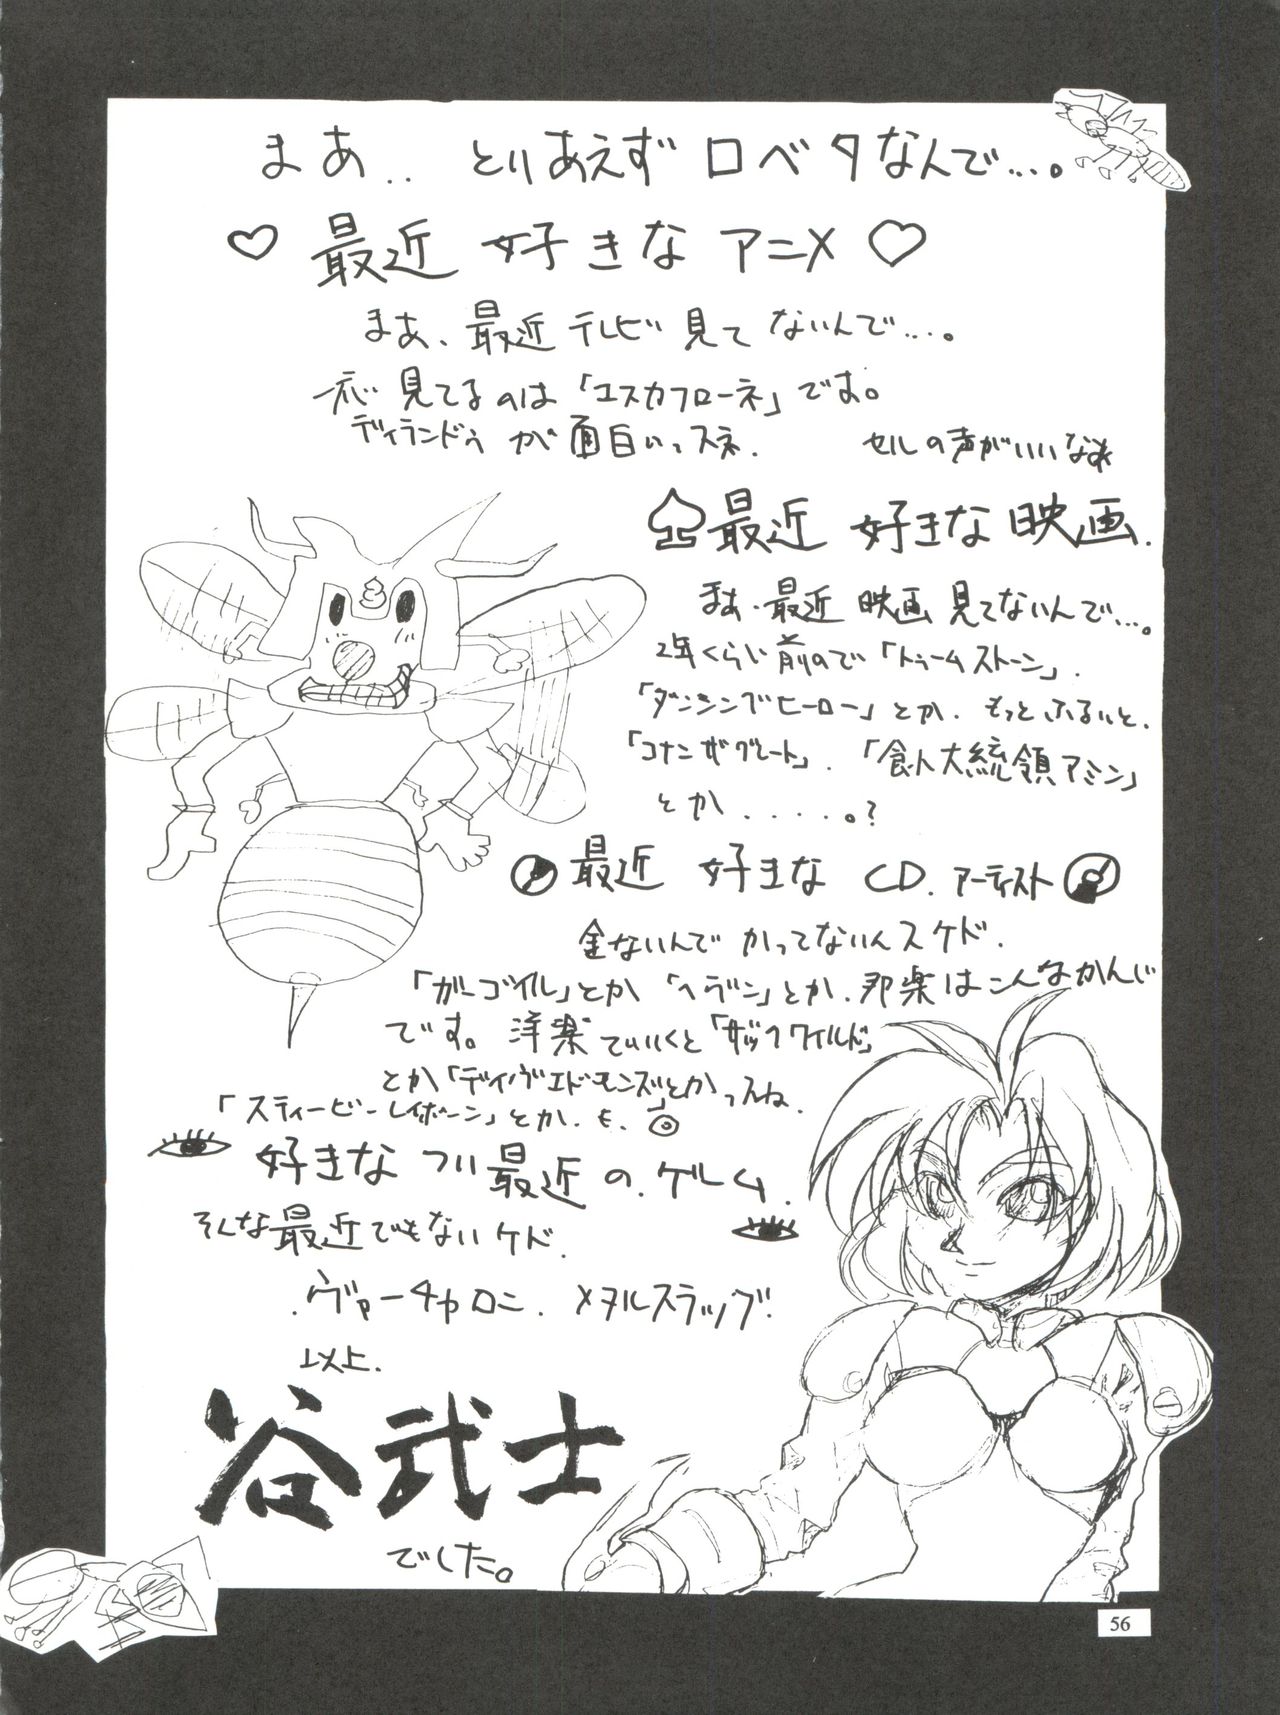 まあ.. とりあえず ロベタなんで...。
♡ 最近 好きな アニメ ♡
まあ、最近 テレビ 見て ないんで...。
一応 見てるのは「エスカフローネ」です。
ディランドゥ が 面白いっスネ.
セルの声がいいなあ
♤最近 好きな 映画.
まあ.最近 映画 見てないんで...。
2年くらい前ので「トゥームストーン」.
「ダンシングヒーロー」とか. もっとふるいと.
「コナン ザ グレート」.「食人大統領アミン」
とか.....。?
最近 好きな CD. アーティスト
金ないんで かってないんスケド.
「ガーゴイル」とか 「ヘヴン」とか.邦楽はこんなかんじ
です。洋楽でいくと「ザックワイルド」
とか「デイヴエドモンズ」とかっスね.
「スティービーレイボーン」とか.も.
好きな つい最近 の.ゲーム.
そんな最近でもないケド.
.ヴァーチャロン. メタルスラッグ.
以上.
谷武士
でした。
56